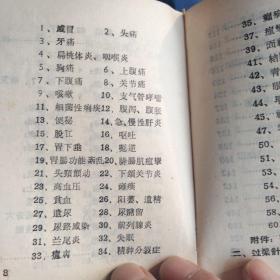 1、感冒 2、头痛
3、牙痛
4、扁桃体炎、咽喉炎
5、胸痛 6、上腹痛
7、下腹痛 8、关节痛
9、咳嗽 10、支气管哮喘
11、细菌性痢疾 12、腹泻、腹胀
13、便秘 14、急、慢性肝炎
15、脱肛 16、呕吐
17、胃下垂 18、呃逆
19、胃肠功能紊乱
21、头颈颤动 22、下颌关节炎
23、高血压 24、瘫痪
25、贫血 26、阳萎、遗精
27、遗尿 28、尿潴留
29、尿路感染 30、前列腺炎
31、兰尾炎 32、失眠
33、癔病 34、精神分裂症
8
35、
36、
37、
39、
41、
43、
45、
47、
50、
52、
54、
56、
58、
60、
附件:
二、过梁针